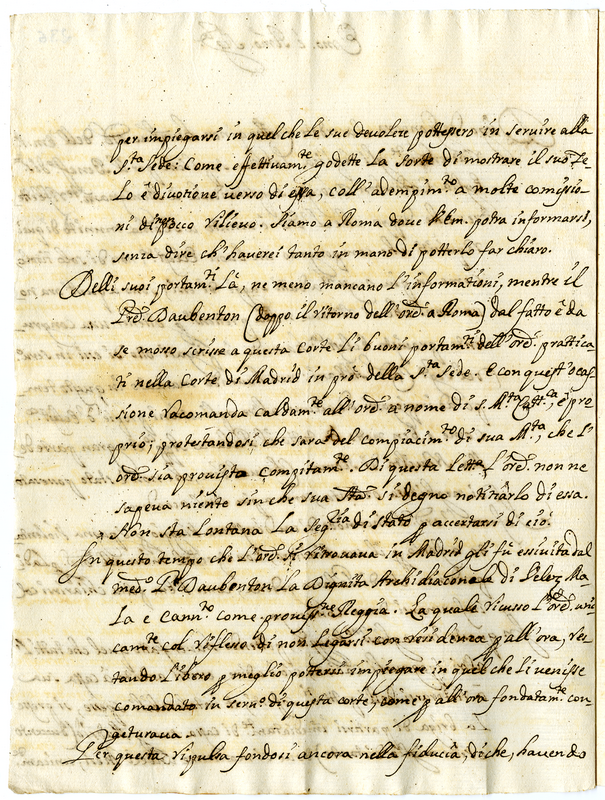 per impiegarsi in quel che le sue devolere pottessero in servire alla
S.ta Sede: Come effettivam.te godette la sorte di mostrare il suo Ze
lo è divotione verso di essa, coll' adempim.to a molte comissio
ni di pocco rilievo. siamo a Roma dove potra informarsi,
senza dire ch' haverei tanto in mano di potterlo far chiaro.
Delli suoi portam.ti là, ne meno mancano l'informationi, mentre il
Prd. Daubenton (doppo il ritorno dell' ord. a Roma) dal fatto è da
se mosso scrisse a questa Corte li buoni portam.ti dell' ord. prattica
ti nella Corte di Madrid in pro della S.ta Sede. E con quest' ocas
sione racomanda caldam.te all' ord. a nome di S. M.ta Catt.ca, è pro
prio; protestandosi che sarà del compiacim.to di sua M.tà, che l'
ord. sia provista compitam.te. Di questa lett.a l'ord. non ne
sapeva niente sin che sua si degno notitiarlo di essa.
Non sta lontana la Seg.ria di stato p accertarsi di ciò.
In questo tempo che l'ord. si ritrovava in Madrid gli fù essivita dal
med.o P. Daubenton la Dignita Archidiaconale di Velez Ma
la e Cann.to come Reggia. La quale ricusso l'ord. uni
cam.te col riflesso di non legarsi con residenza p all'ora, res
tando libero p meglio pottersi impiegare in quel che li venisse
comandato in serv.o di questa corte, come p all'ora fondatam.te con
getturava.
Per questa ripulsa fondosi ancora nella fiducia, di che, havendo